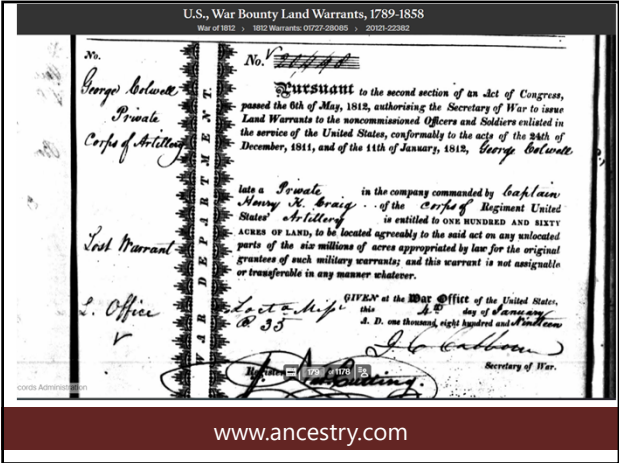 U.S., War Bounty Land Warrants, 1789-1858
War of 1812 > 1812 Warrants: 01727-28085 > 20121-22382
No.
George Colwell
Private
Corps of Artillery
Lost Warrant
L. Office
WAR DEPARTMENT.
No.
Pursuant to the second section of an Act of Congress,
passed the 6th of May, 1812, authorising the Secretary of War to issue
Land Warrants to the noncommissioned Officers and Soldiers enlisted in
the service of the United States, conformably to the acts of the 24th of
December, 1811, and of the 11th of January, 1812, George Colwell
late a Private in the company commanded by Captain
Henry K. Craig of the Corps of Regiment United
States' Artillery is entitled to ONE HUNDRED AND SIXTY
ACRES OF LAND, to be located agreeably to the said act on any unlocated
parts of the six millions of acres appropriated by law for the original
grantees of such military warrants; and this warrant is not assignable
or transferable in any manner whatever.
GIVEN at the War Office of the United States,
this 4th day of January
A. D. one thousand, eight hundred and Nineteen
J C Calhoun
Secretary of War.
Register
179 of 1178
cords Administration
www.ancestry.com